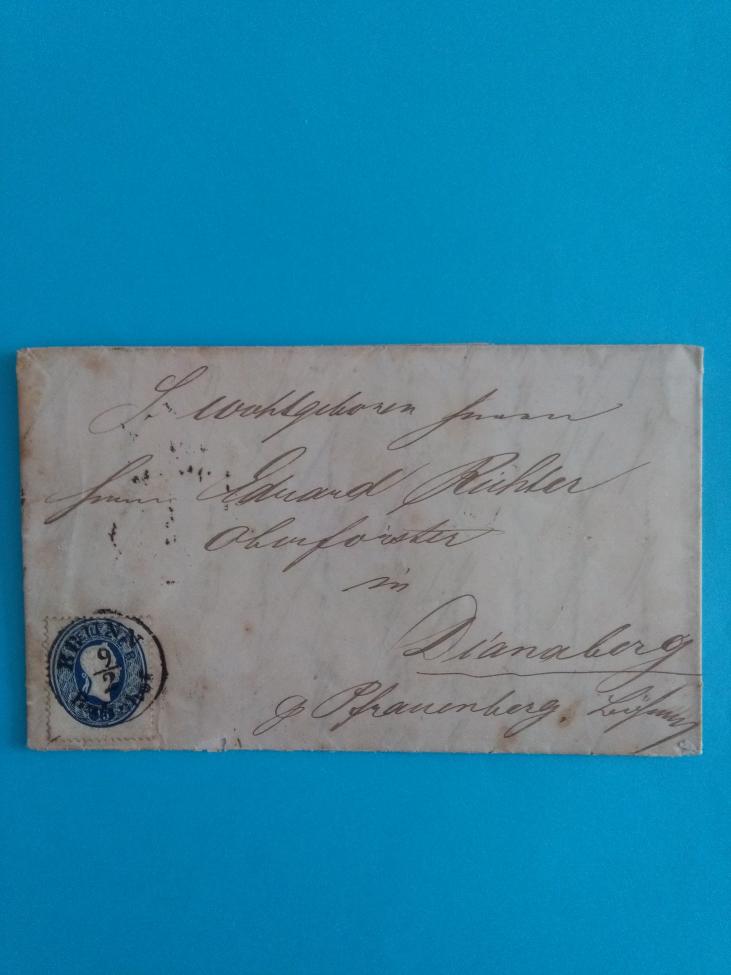 Wohlgeboren Herrn
Herrn Eduard Richter
Oberförster
in
Dianaberg
Pfrauenberg. Böhmen
BRÜNN
9/2
15